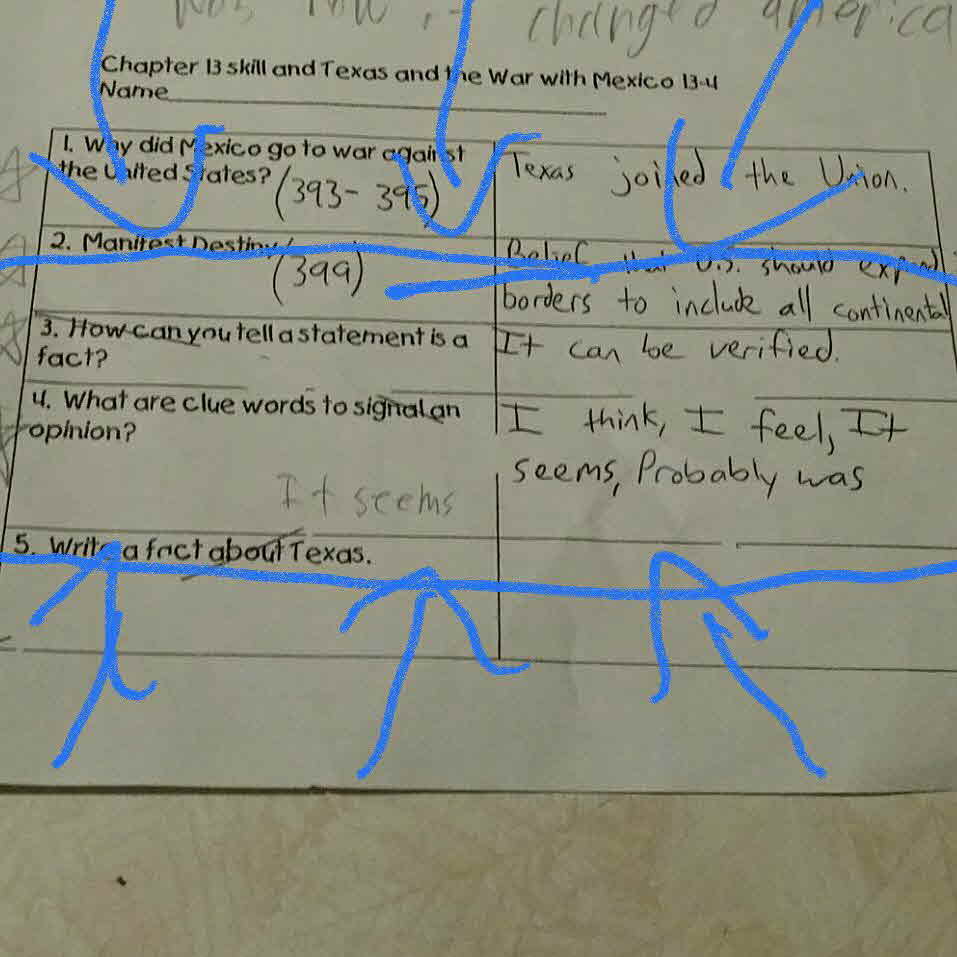 changed america
Chapter 13 skill and Texas and the War with Mexico 13-4
Name
1. Why did Mexico go to war against
the United States?
(393-395)
Texas joined the Union.
2. Manifest Destiny
(399)
Belief that U.S. should expand
borders to include all continental
3. How can you tell a statement is a
fact?
It can be verified.
4. What are clue words to signal an
opinion?
It seems
I think, I feel, It
seems, Probably was
5. Write a fact about Texas.